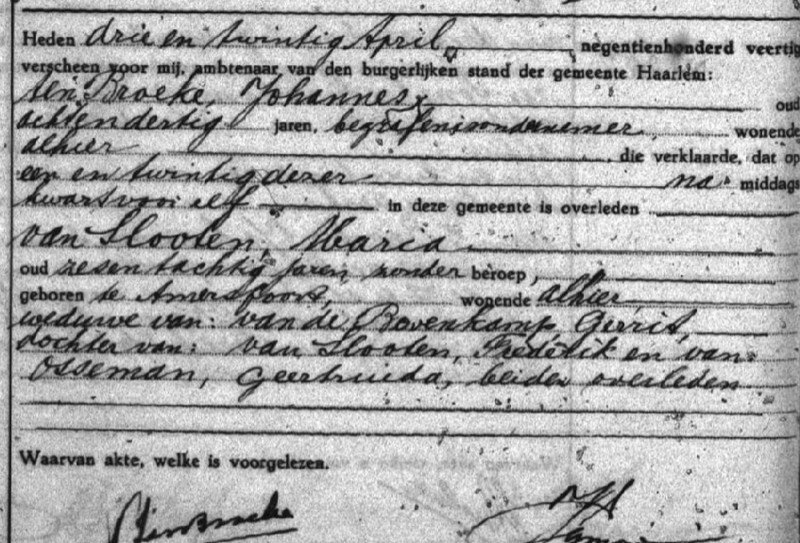 Heden drie en twintig April, negentienhonderd veertig
verscheen voor mij, ambtenaar van den burgerlijken stand der gemeente Haarlem:
ten Broeke, Johannes, oud
achtendertig jaren, begrafenisondernemer wonende
alhier, die verklaarde, dat op
een en twintig dezer na middags
kwart voor elf in deze gemeente is overleden
van Slooten, Maria
oud zesentachtig jaren, zonder beroep,
geboren te Amersfoort, wonende alhier
weduwe van: van de Bovenkamp, Gerrit,
dochter van: van Slooten, Frederik en van
Osseman, Geertruida, beiden overleden
Waarvan akte, welke is voorgelezen.
tenBroeke